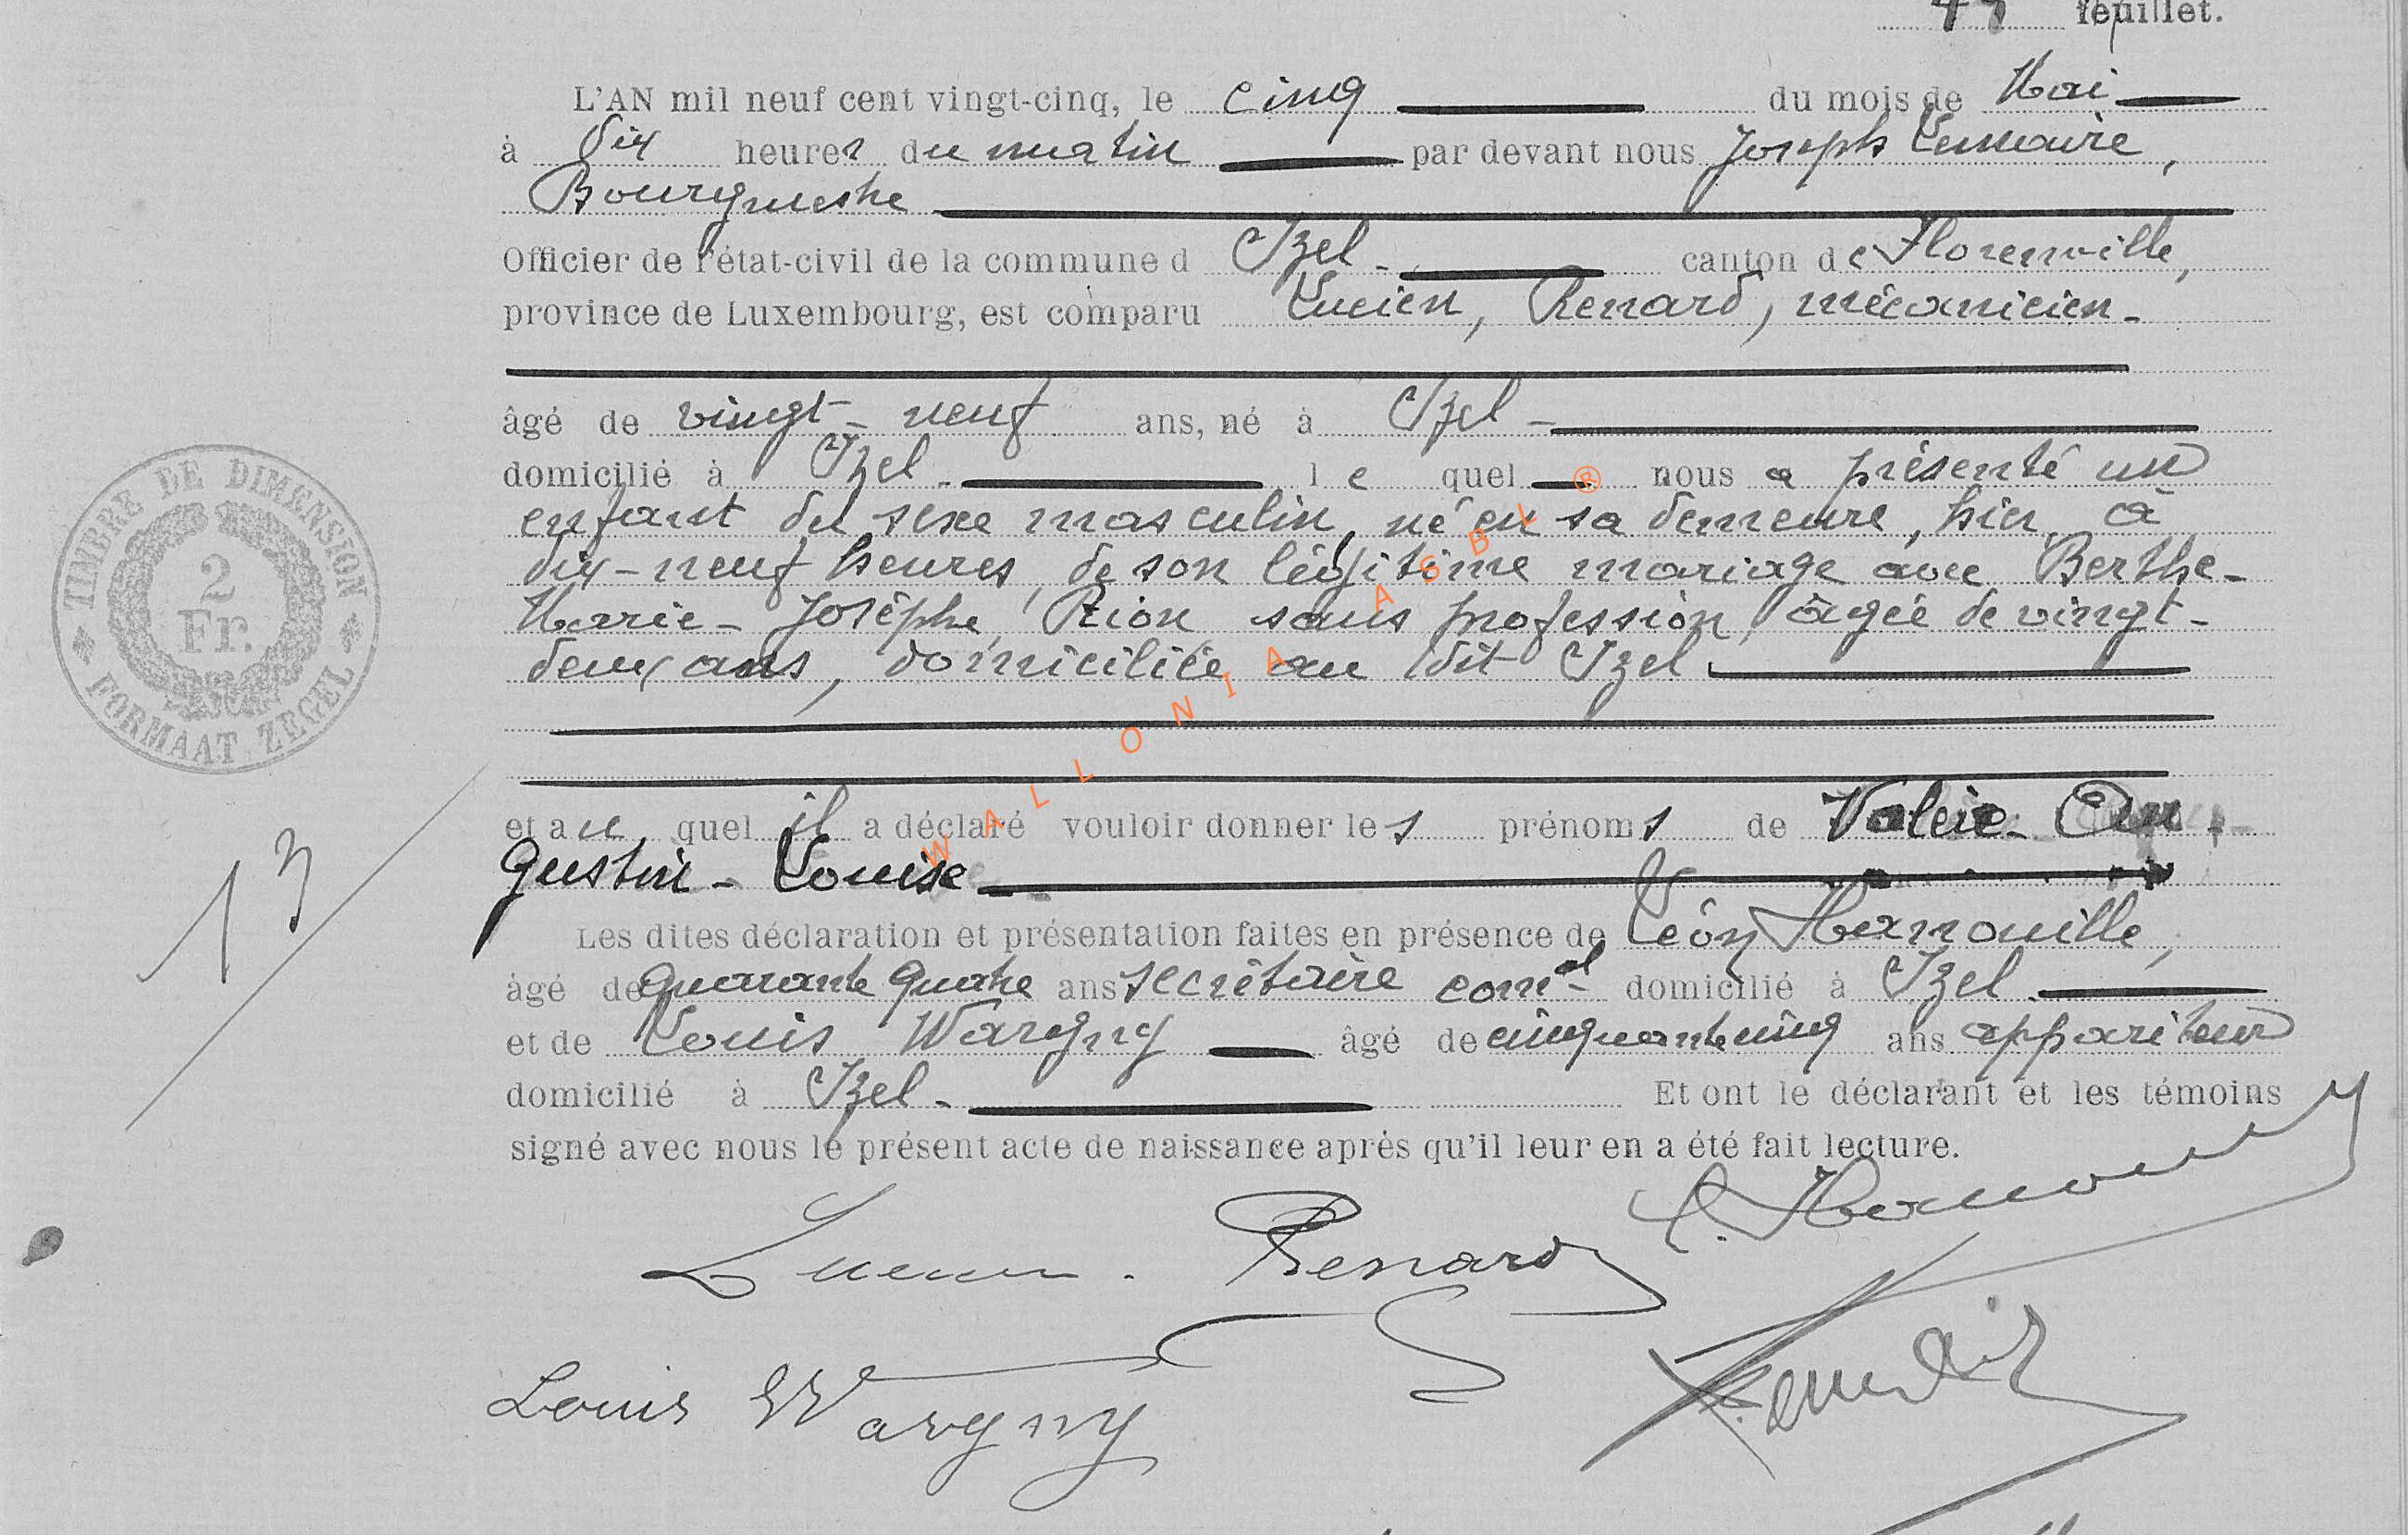 feuillet.
L'AN mil neuf cent vingt-cinq, le cinq du mois de Mai
à dix heures du matin par devant nous Joseph Lemaire,
Bourgmestre
Officier de l'état-civil de la commune d Izel - canton de Florenville,
province de Luxembourg, est comparu Lucien, Renard, mécanicien -
âgé de vingt-neuf ans, né à Izel -
domicilié à Izel - le quel nous a présenté un
enfant du sexe masculin, né en sa demeure, hier, à
dix-neuf heures, de son légitime mariage avec Berthe-
Marie-Josèphe, Rion sans profession, âgée de vingt-
deux ans, domiciliée au dit Izel
et au quel il a déclaré vouloir donner les prénoms de Valère-Au-
gustin-Louis
Les dites déclaration et présentation faites en présence de Léon Hanouille,
âgé de quarante quatre ans secrétaire com.al domicilié à Izel
et de Louis Wargny âgé de cinquante cinq ans appariteur
domicilié à Izel - Et ont le déclarant et les témoins
signé avec nous le présent acte de naissance après qu'il leur en a été fait lecture.
Lucien. Renard
Louis Wargny
TIMBRE DE DIMENSION
2
Fr.
FORMAAT ZEGEL
13
WALLONIA ASBL ®